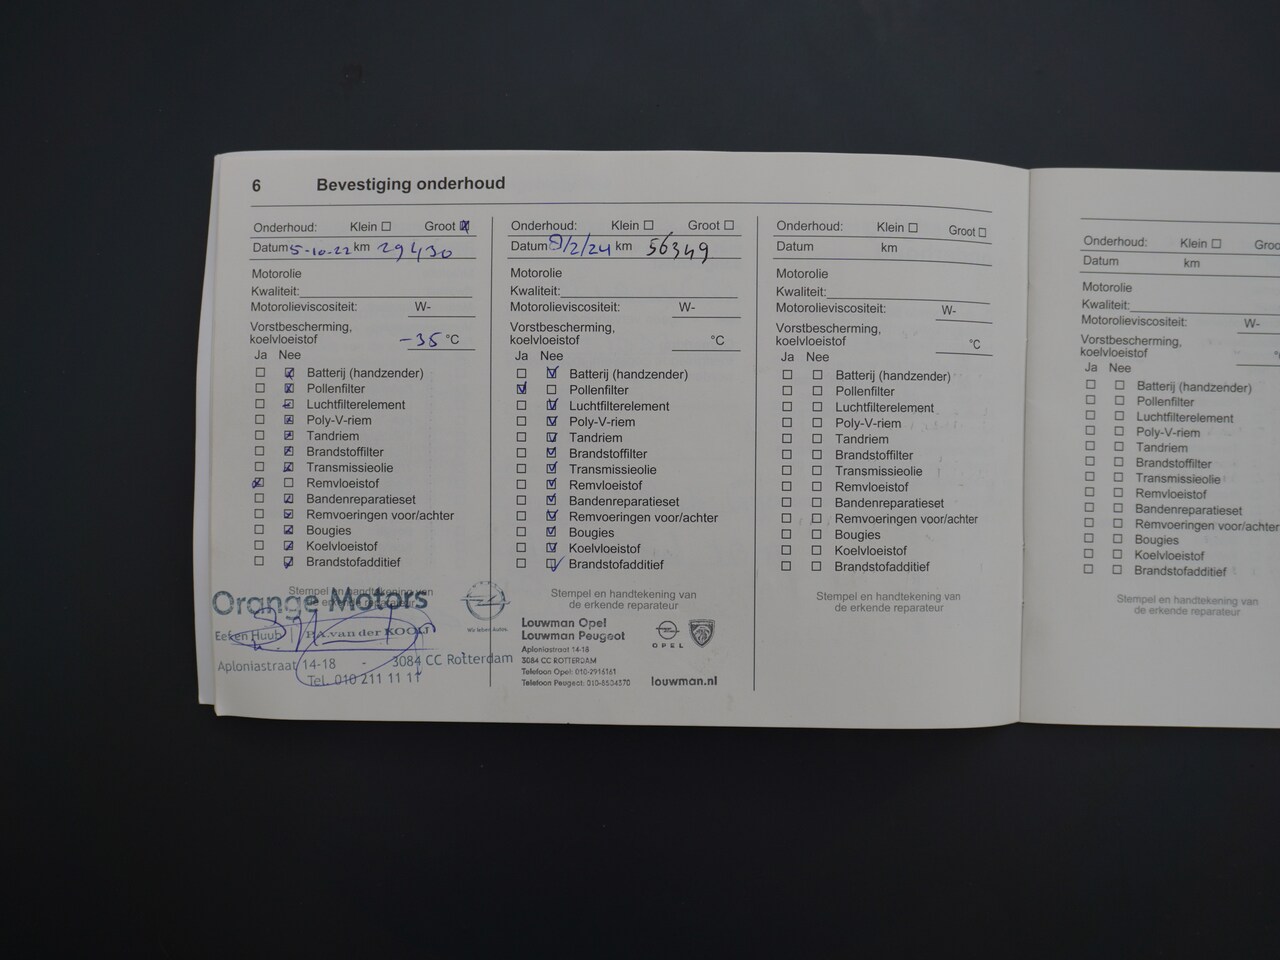 6 Bevestiging onderhoud
Onderhoud: Klein ☐ Groot ☒
Datum 5-10-22 km 29430
Motorolie
Kwaliteit:
Motorolieviscositeit: W-
Vorstbescherming,
koelvloeistof -35 °C
Ja Nee
☐ ☑ Batterij (handzender)
☐ ☑ Pollenfilter
☐ ☑ Luchtfilterelement
☐ ☑ Poly-V-riem
☐ ☑ Tandriem
☐ ☑ Brandstoffilter
☐ ☑ Transmissieolie
☑ ☐ Remvloeistof
☐ ☑ Bandenreparatieset
☐ ☑ Remvoeringen voor/achter
☐ ☑ Bougies
☐ ☑ Koelvloeistof
☐ ☑ Brandstofadditief
Stempel en handtekening van
de erkende reparateur
Orange Motors
Wir leben Autos.
Eeken Huub P.A. van der KOOIJ
Aploniastraat 14-18 - 3084 CC Rotterdam
Tel. 010 211 11 11
Onderhoud: Klein ☐ Groot ☐
Datum 9/2/24 km 56349
Motorolie
Kwaliteit:
Motorolieviscositeit: W-
Vorstbescherming,
koelvloeistof °C
Ja Nee
☐ ☑ Batterij (handzender)
☑ ☐ Pollenfilter
☐ ☑ Luchtfilterelement
☐ ☑ Poly-V-riem
☐ ☑ Tandriem
☐ ☑ Brandstoffilter
☐ ☑ Transmissieolie
☐ ☑ Remvloeistof
☐ ☑ Bandenreparatieset
☐ ☑ Remvoeringen voor/achter
☐ ☑ Bougies
☐ ☑ Koelvloeistof
☐ ☑ Brandstofadditief
Stempel en handtekening van
de erkende reparateur
Louwman Opel
Louwman Peugeot
Aploniastraat 14-18
3084 CC ROTTERDAM
Telefoon Opel: 010-2916161
Telefoon Peugeot: 010-8504370
OPEL
louwman.nl
Onderhoud: Klein ☐ Groot ☐
Datum km
Motorolie
Kwaliteit:
Motorolieviscositeit: W-
Vorstbescherming,
koelvloeistof °C
Ja Nee
☐ ☐ Batterij (handzender)
☐ ☐ Pollenfilter
☐ ☐ Luchtfilterelement
☐ ☐ Poly-V-riem
☐ ☐ Tandriem
☐ ☐ Brandstoffilter
☐ ☐ Transmissieolie
☐ ☐ Remvloeistof
☐ ☐ Bandenreparatieset
☐ ☐ Remvoeringen voor/achter
☐ ☐ Bougies
☐ ☐ Koelvloeistof
☐ ☐ Brandstofadditief
Stempel en handtekening van
de erkende reparateur
Onderhoud: Klein ☐ Groo
Datum km
Motorolie
Kwaliteit:
Motorolieviscositeit: W-
Vorstbescherming,
koelvloeistof °
Ja Nee
☐ ☐ Batterij (handzender)
☐ ☐ Pollenfilter
☐ ☐ Luchtfilterelement
☐ ☐ Poly-V-riem
☐ ☐ Tandriem
☐ ☐ Brandstoffilter
☐ ☐ Transmissieolie
☐ ☐ Remvloeistof
☐ ☐ Bandenreparatieset
☐ ☐ Remvoeringen voor/achter
☐ ☐ Bougies
☐ ☐ Koelvloeistof
☐ ☐ Brandstofadditief
Stempel en handtekening van
de erkende reparateur